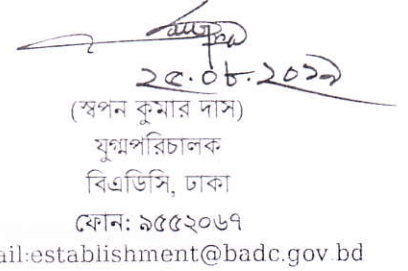 ২৫.০৮.২০১৯
(স্বপন কুমার দাস)
যুগ্মপরিচালক
বিএডিসি, ঢাকা
ফোন: ৯৫৫২০৬৭
ail:establishment@badc.gov.bd